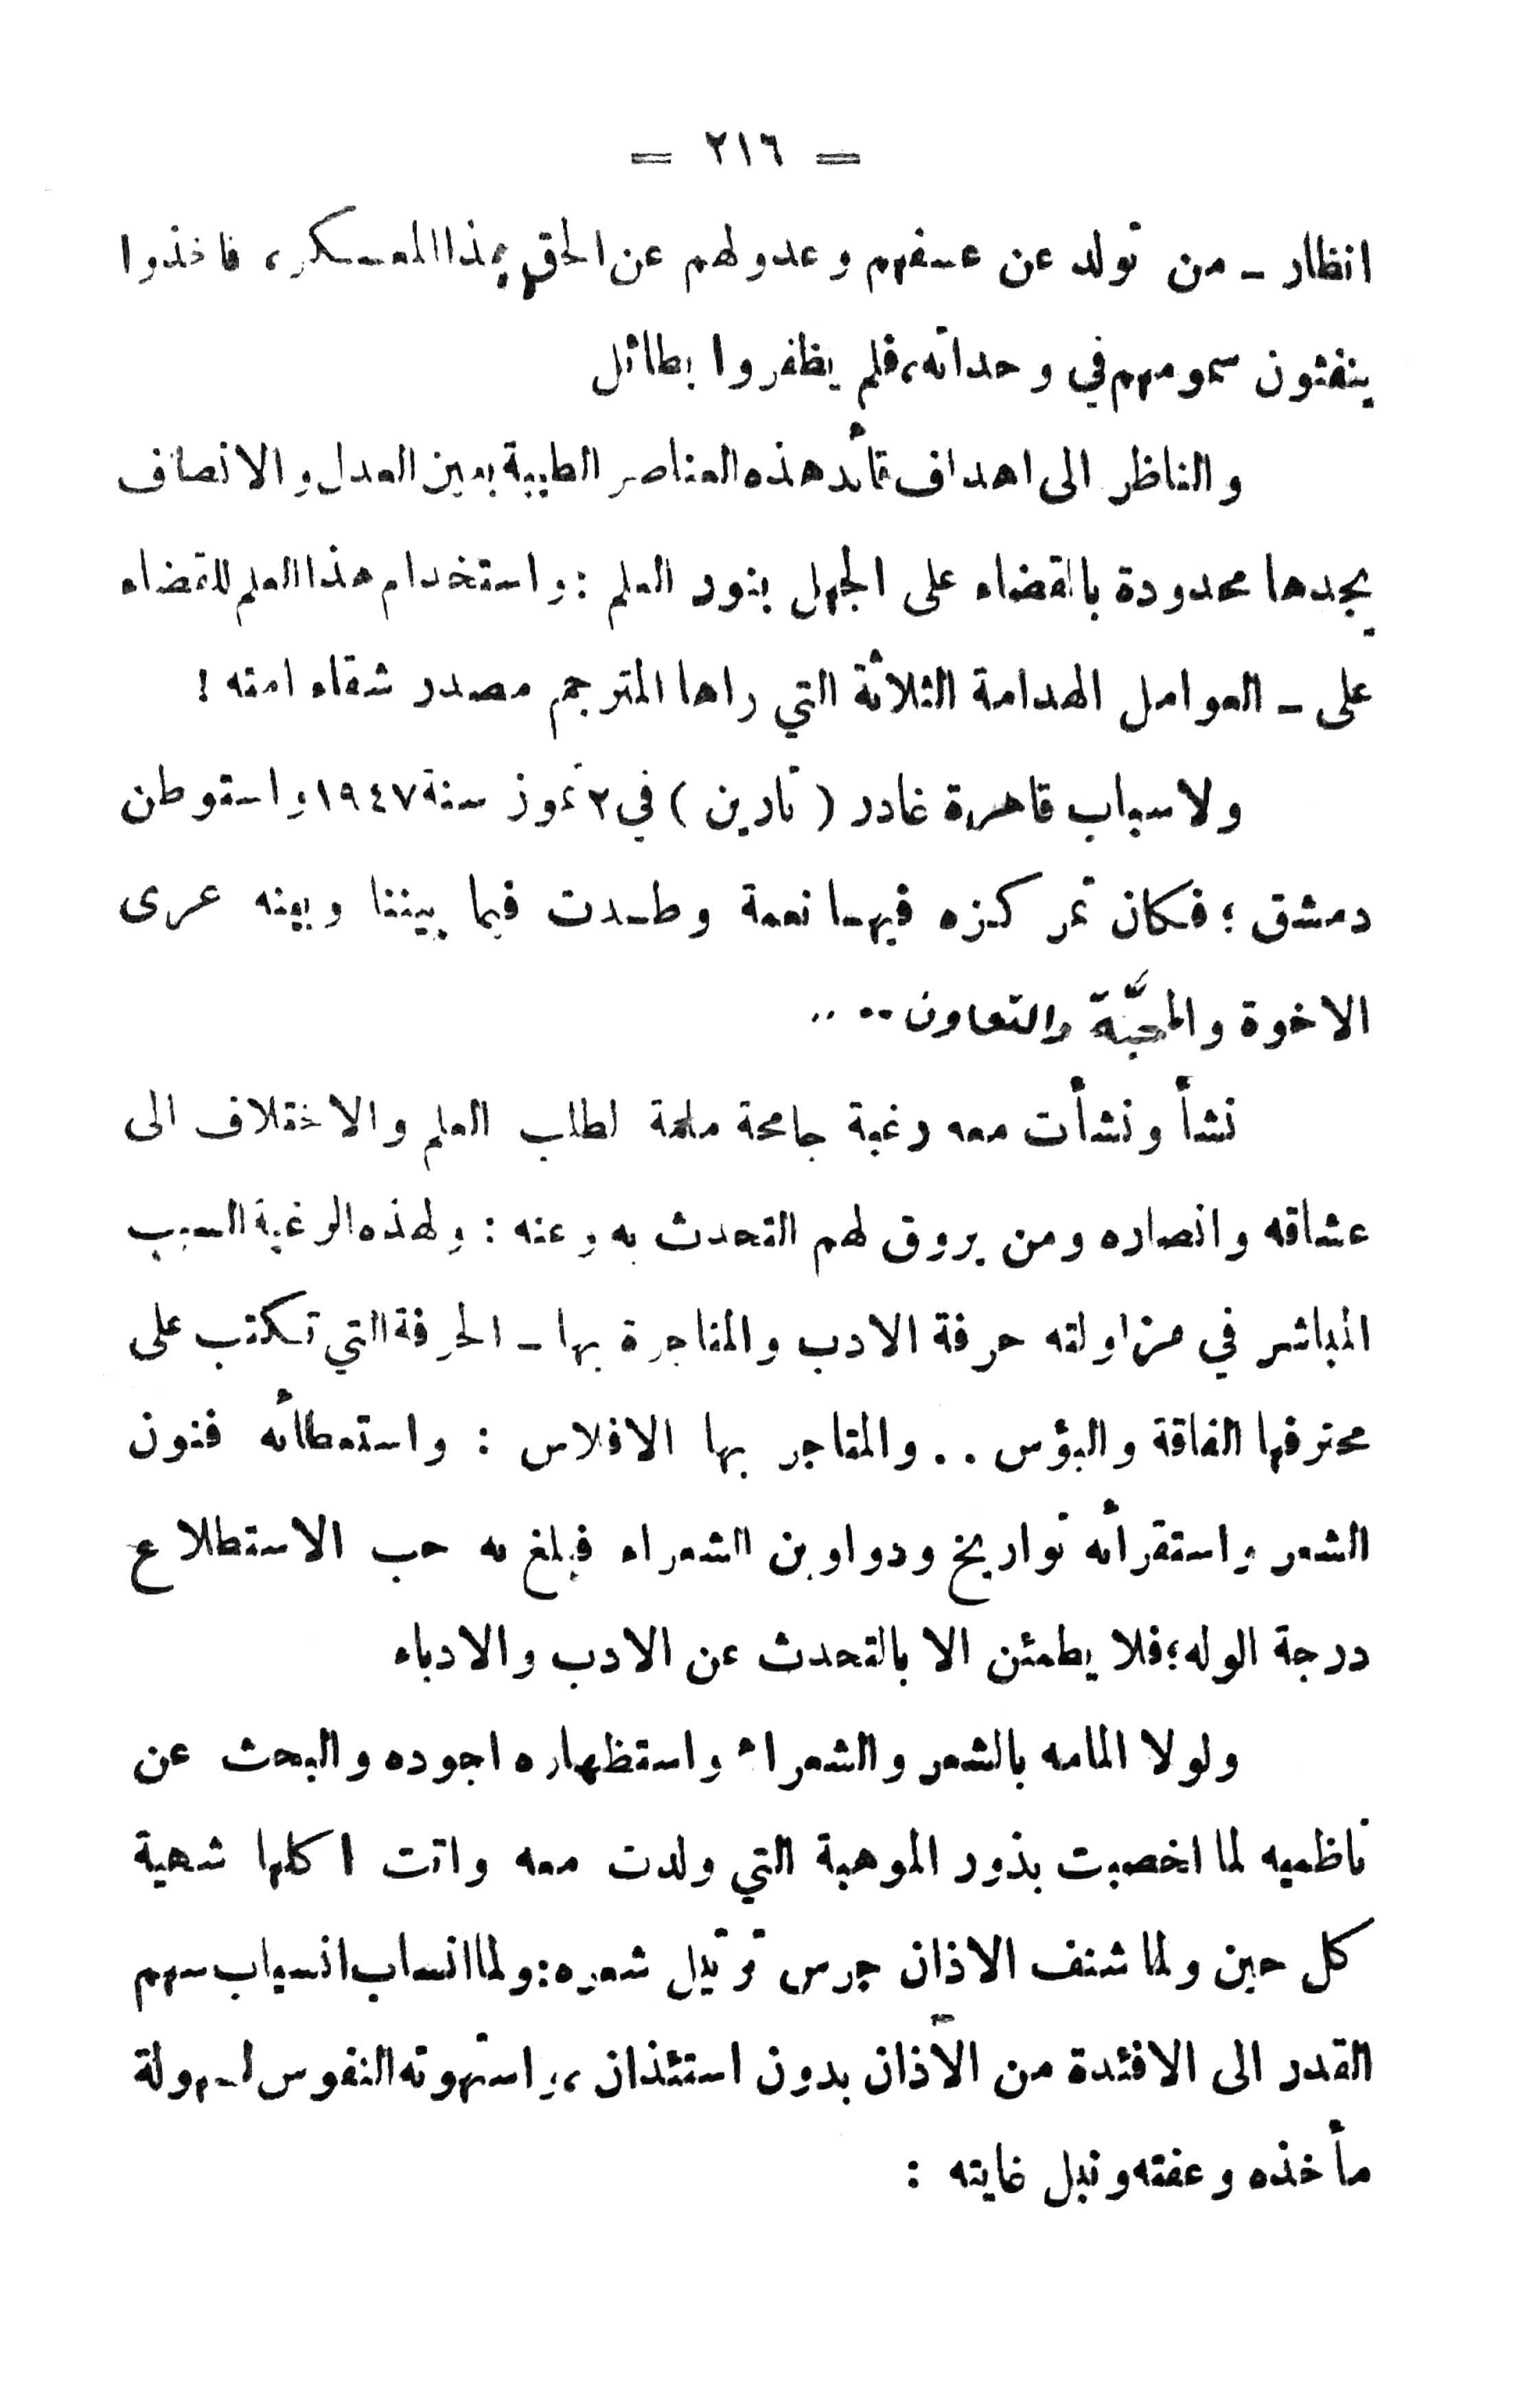 = ٢١٦ =
انظار ـ من تولد عن عسفهم وعدولهم عن الحق بهذا المعسكر، فاخذوا
ينفثون سمومهم في وحداته، فلم يظفروا بطائل
والناظر الى اهداف قائد هذه العناصر الطيبة بعين العدل والانصاف
يجدها محدودة بالقضاء على الجهل بنور العلم : واستخدام هذا العلم للقضاء
على ـ العوامل الهدامة الثلاثة التي راها المترجم مصدر شقاء امته !
ولاسباب قاهرة غادر ( نارين ) في ٢ تموز سنة ١٩٤٧ واستوطن
دمشق ؛ فكان تمركزه فيها نعمة وطدت فيما بيننا وبينه عرى
الاخوة والمحبَّة والتعاون .. ..
نشأ ونشأت معه رغبة جامحة ملحة لطلب العلم والاختلاف الى
عشاقه وانصاره ومن يروق لهم التحدث به وعنه : ولهذه الرغبة السبب
المباشر في مزاولته حرفة الادب والمتاجرة بها ـ الحرفة التي تكتب على
محترفها الفاقة والبؤس .. والمتاجر بها الافلاس : واستعطائه فنون
الشعر واستقرائه تواريخ ودواوين الشعراء فبلغ به حب الاستطلاع
درجة الوله ؛ فلا يطمئن الا بالتحدث عن الادب والادباء
ولولا المامه بالشعر والشعراء واستظهاره اجوده والبحث عن
ناظميه لما اخصبت بذور الموهبة التي ولدت معه واتت اكلها شهية
كل حين ولما شنف الاذان جرس ترتيل شعره : ولما انساب انسياب سهم
القدر الى الافئدة من الآذان بدون استئذان ، واستهوته النفوس لسهولة
مأخذه وعفته ونبل غايته :